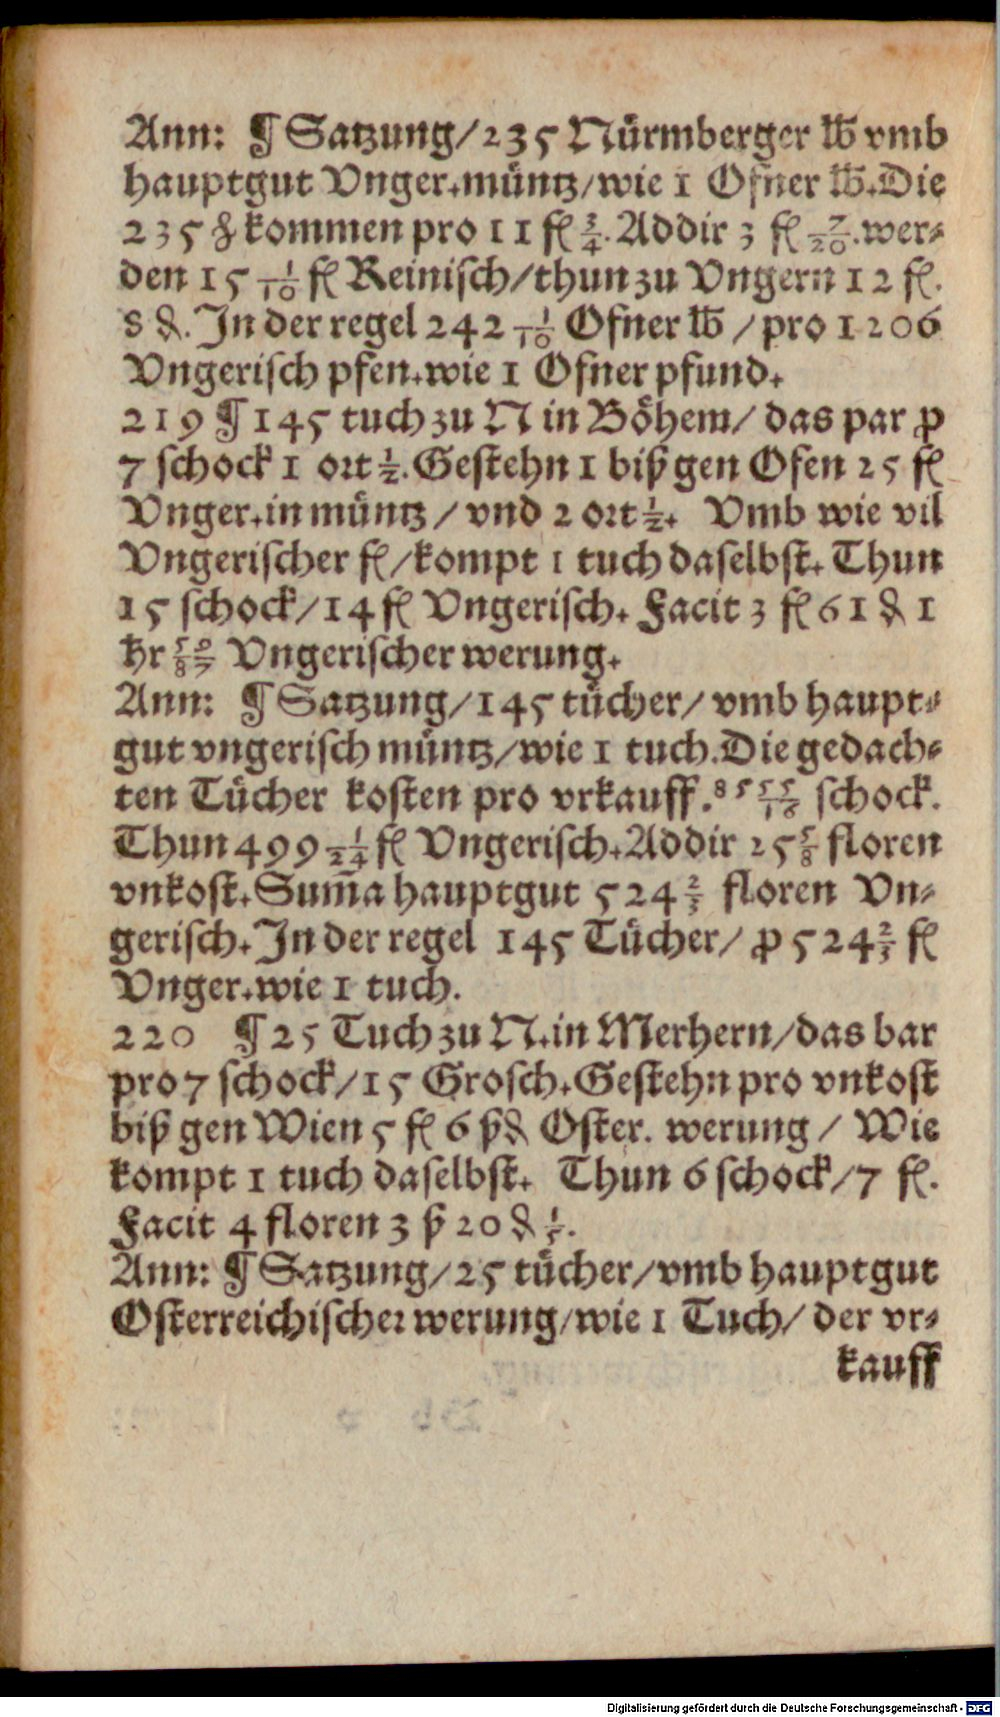 Ann: ¶ Satzung/235 Nürmberger lb vmb
hauptgut Vnger.müntz/wie 1 Ofner lb.Die
235 ₰ kommen pro 11 fl 3/4. Addir 3 fl 7/20.wer-
den 15 1/10 fl Reinisch/thun zu Vngern 12 fl.
8 ₰. In der regel 242 1/10 Ofner lb /pro 1206
Vngerisch pfen.wie 1 Ofner pfund.
219 ¶ 145 tuch zu N in Böhem/ das par ꝓ
7 schock 1 ort 1/2. Gestehn 1 biß gen Ofen 25 fl
Vnger.in müntz / vnd 2 ort 1/2. Vmb wie vil
Vngerischer fl/kompt 1 tuch daselbst. Thun
15 schock/14 fl Vngerisch. Facit 3 fl 61 ₰ 1
hr 50/87 Vngerischer werung.
Ann: ¶ Satzung/145 tücher/ vmb haupt-
gut vngerisch müntz/wie 1 tuch.Die gedach-
ten Tücher kosten pro vrkauff. schock.
Thun 499 1/24 fl Vngerisch.Addir 25 5/8 floren
vnkost.Sum̃a hauptgut 524 2/3 floren Vn-
gerisch.In der regel 145 Tücher/ ꝓ 524 2/3 fl
Vnger.wie 1 tuch.
220 ¶ 25 Tuch zu N.in Merhern/das bar
pro 7 schock/15 Grosch.Gestehn pro vnkost
biß gen Wien 5 fl 6 ß₰ Oster. werung / Wie
kompt 1 tuch daselbst. Thun 6 schock/7 fl.
Facit 4 floren 3 ß 20 ₰ 1/5.
Ann: ¶ Satzung/25 tücher/vmb hauptgut
Osterreichischer werung/wie 1 Tuch/ der vr-
kauff
Digitalisierung gefördert durch die Deutsche Forschungsgemeinschaft - DFG